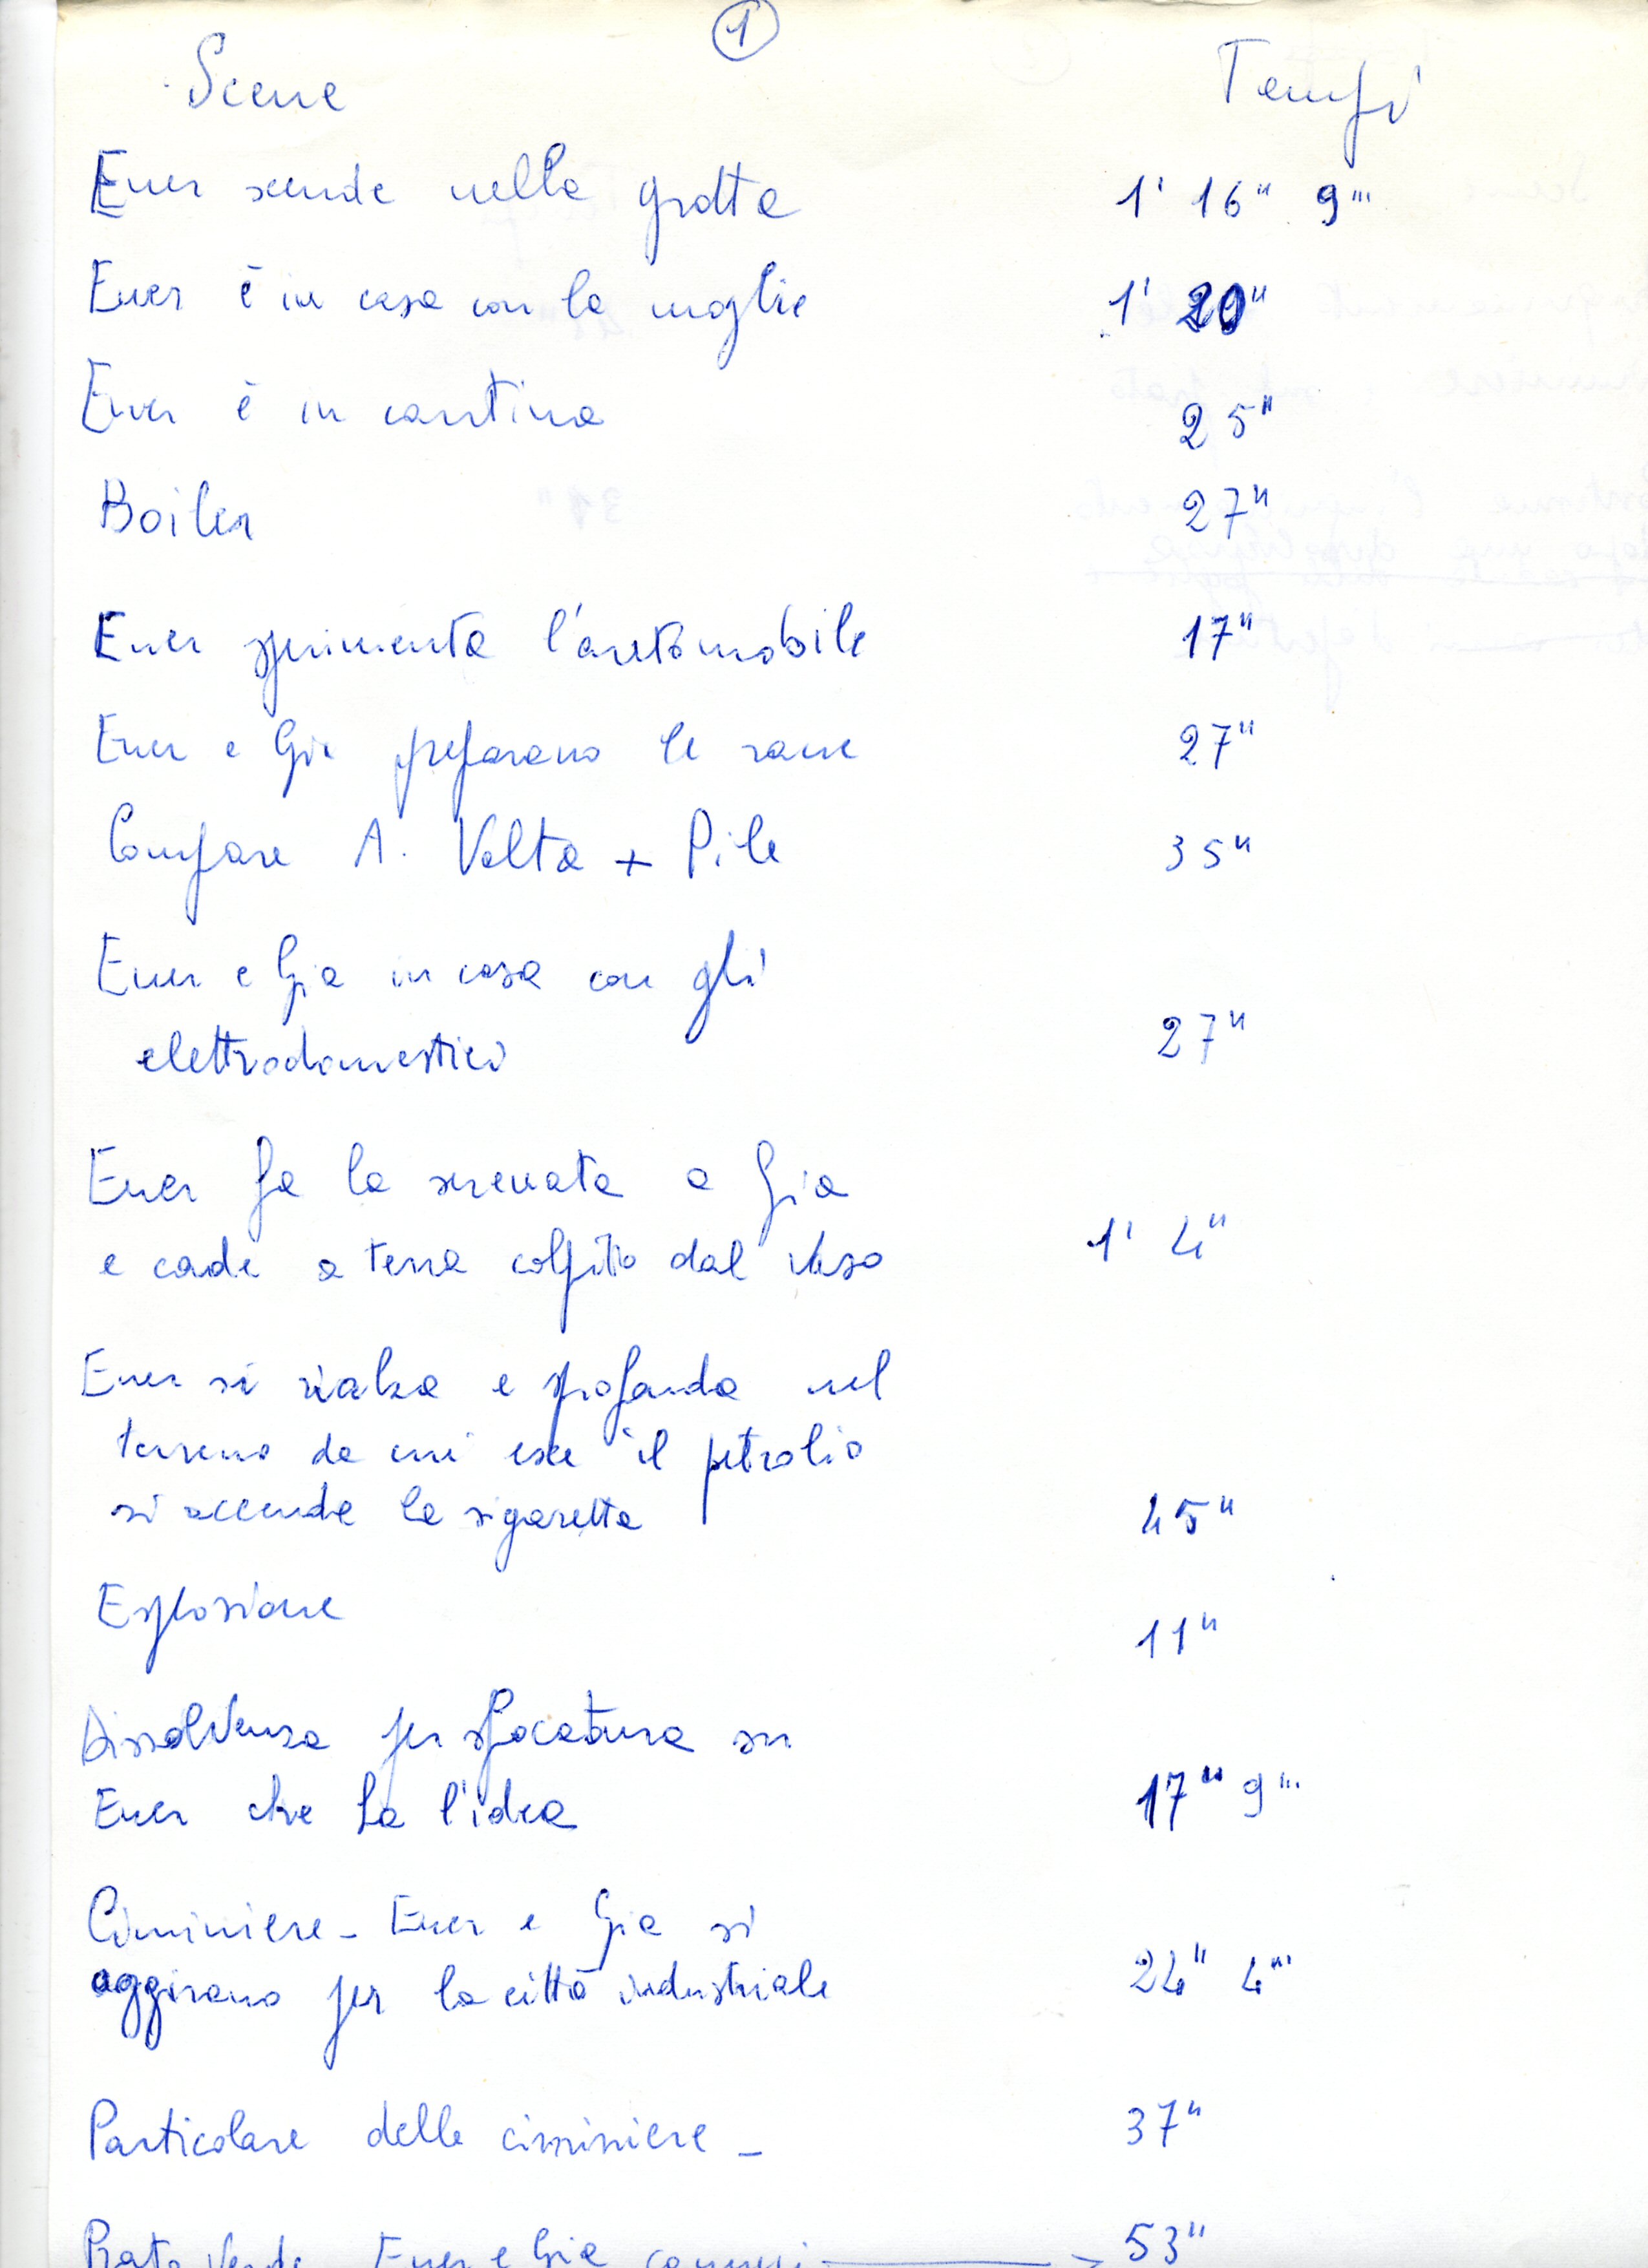 1
Scene Tempi
Ener scende nella grotta 1' 16" 9'''
Ener è in casa con la moglie 1' 20"
Ener è in cantina 25"
Boiler 27"
Ener sperimenta l'automobile 17"
Ener e Gia preparano le rane 27"
Compare A. Volta + Pile 35"
Ener e Gia in casa con gli
elettrodomestici 27"
Ener fa la serenata a Gia
e cade a terra colpito dal vaso 1' 4"
Ener si rialza e sprofonda nel
terreno da cui esce il petrolio
si accende la sigaretta 45"
Esplosione 11"
Dissolvenza per sfocatura su
Ener che ha l'idea 17" 9'''
Ciminiere - Ener e Gia si
aggirano per la città industriale 24" 4'''
Particolare delle ciminiere - 37"
Prato verde Ener e Gia 53"